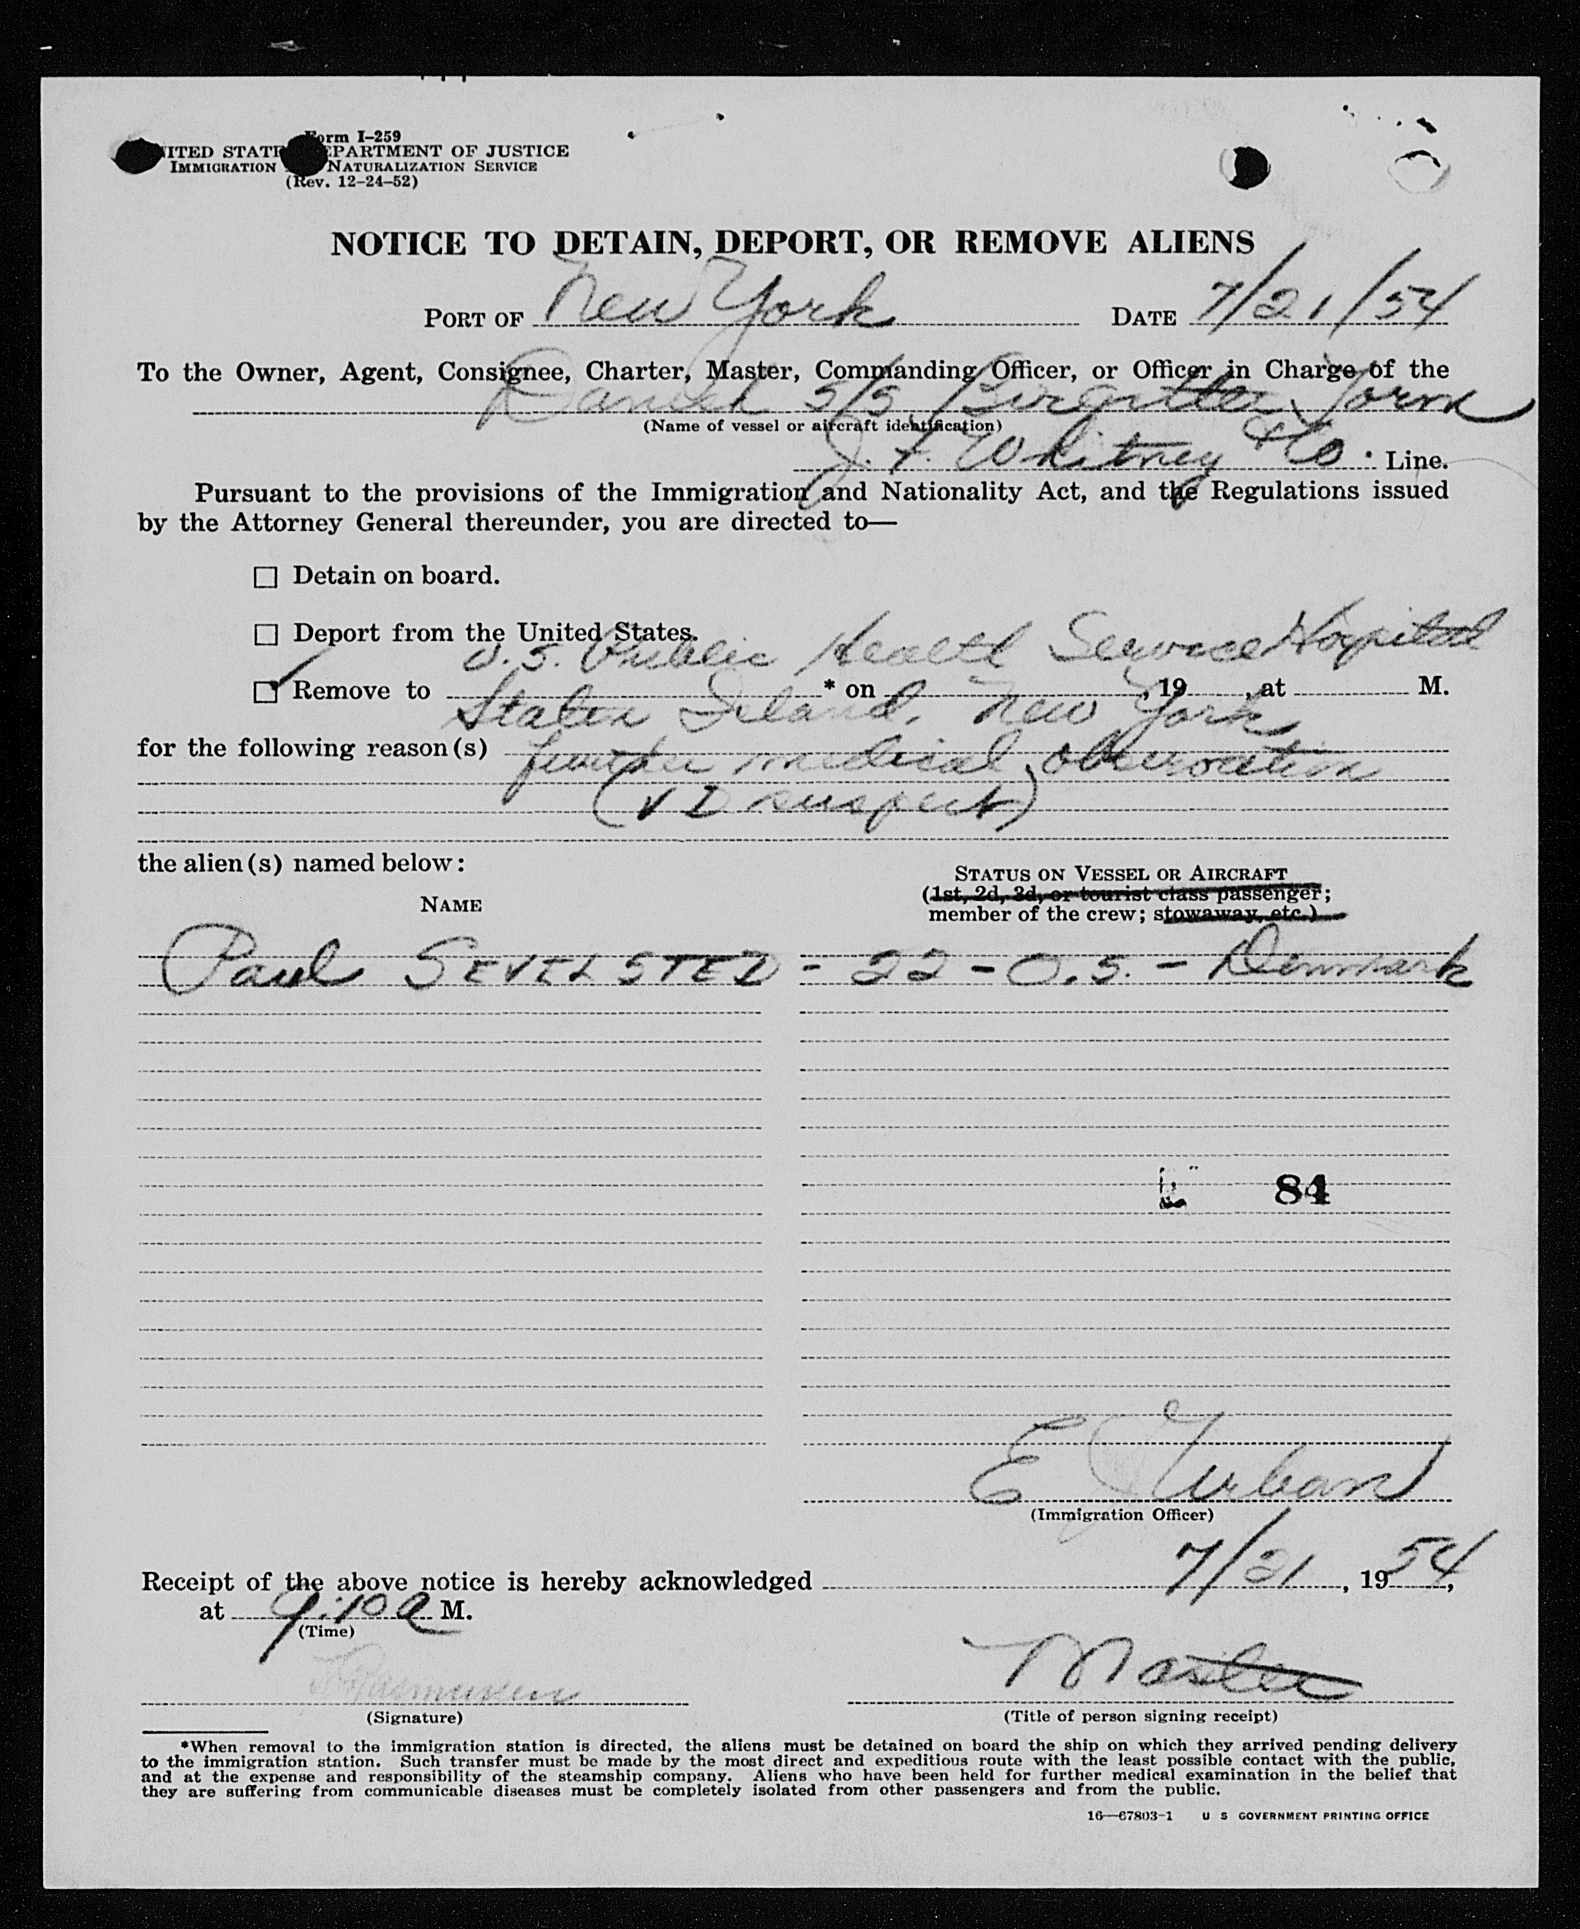 Form I-259
UNITED STATES DEPARTMENT OF JUSTICE
IMMIGRATION NATURALIZATION SERVICE
(Rev. 12-24-52)
NOTICE TO DETAIN, DEPORT, OR REMOVE ALIENS
PORT OF New York DATE 7/21/54
To the Owner, Agent, Consignee, Charter, Master, Commanding Officer, or Officer in Charge of the
Danish S/S Birgitte Torm
(Name of vessel or aircraft identification)
J. F. Whitney & Co. Line.
Pursuant to the provisions of the Immigration and Nationality Act, and the Regulations issued
by the Attorney General thereunder, you are directed to—
☐ Detain on board.
☐ Deport from the United States.
U.S. Public Health Service Hospital
☑ Remove to * on , 19 , at M.
Staten Island, New York
for the following reason(s) further medical observation
(VD suspect)
the alien(s) named below:
STATUS ON VESSEL OR AIRCRAFT
NAME (1st, 2d, 3d, or tourist class passenger;
member of the crew; stowaway, etc.)
Paul SEVELSTED - 22 - O.S. - Denmark
84
E Urban
(Immigration Officer)
Receipt of the above notice is hereby acknowledged 7/21, 1954,
at 9:10 a M.
(Time)
Rasmussen Master
(Signature) (Title of person signing receipt)
*When removal to the immigration station is directed, the aliens must be detained on board the ship on which they arrived pending delivery
to the immigration station. Such transfer must be made by the most direct and expeditious route with the least possible contact with the public,
and at the expense and responsibility of the steamship company. Aliens who have been held for further medical examination in the belief that
they are suffering from communicable diseases must be completely isolated from other passengers and from the public.
16—67803-1 U S GOVERNMENT PRINTING OFFICE